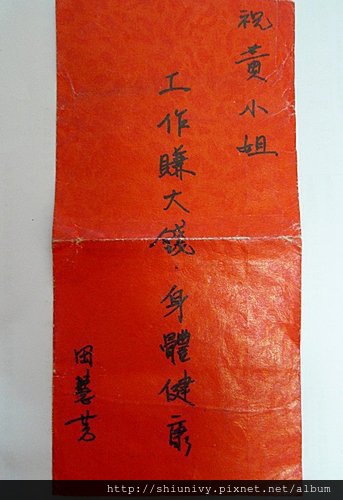 祝黃小姐
工作賺大錢．身體健康
田慧芳
http://shiunivy.pixnet.net/album